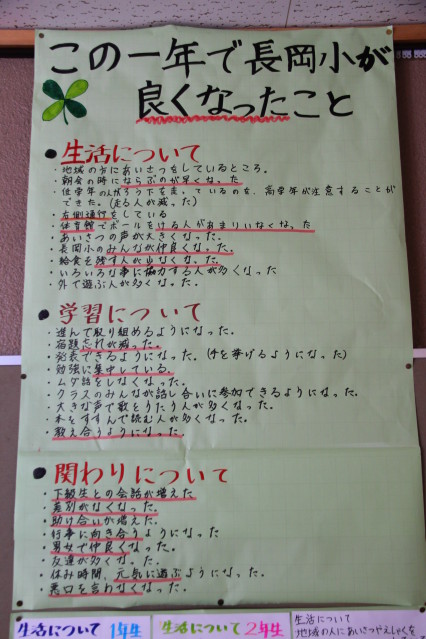 この一年で長岡小が
良くなったこと
●生活について
・地域の方にあいさつをしているところ。
・朝会の時にならぶのが早くなった
・低学年の人がろう下を走っているのを、高学年が注意することが
できた。(走る人が減った)
・右側通行をしている
・体育館でボールをける人があまりいなくなった
・あいさつの声が大きくなった。
・長岡小のみんなが仲良くなった。
・給食を残す人が少なくなった。
・いろいろな事に協力する人が多くなった
・外で遊ぶ人が多くなった。
●学習について
・進んで取り組めるようになった。
・宿題忘れが減った。
・発表できるようになった。(手を挙げるようになった)
・勉強に集中している。
・ムダ話をしなくなった。
・クラスのみんなが話し合いに参加できるようになった。
・大きな声で歌をうたう人が多くなった。
・本をすすんで読む人が多くなった。
・教え合うようになった。
●関わりについて
・下級生との会話が増えた
・差別がなくなった。
・助け合いが増えた。
・行事に向き合うようになった
・男女で仲良くなった。
・友達が多くなった。
・休み時間、元気に遊ぶようになった。
・悪口を言わなくなった。
生活について 1年生
生活について 2年生
生活について
地域の人にあいさつやえしゃくを